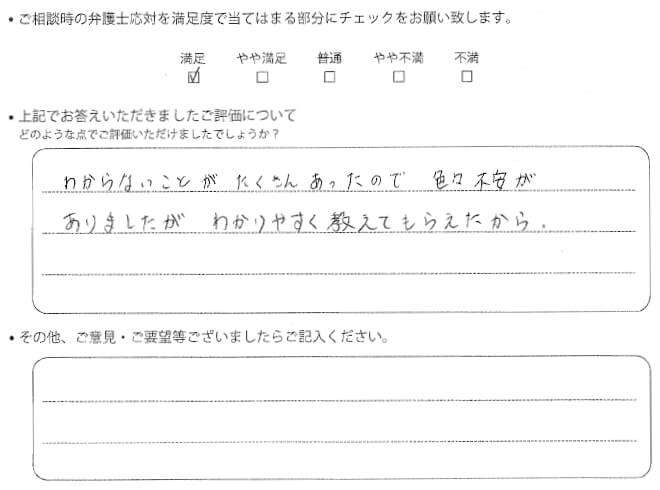 ・ご相談時の弁護士応対を満足度で当てはまる部分にチェックをお願い致します。
満足 やや満足 普通 やや不満 不満
☑ ☐ ☐ ☐ ☐
・上記でお答えいただきましたご評価について
どのような点でご評価いただけましたでしょうか？
わからないことが たくさんあったので 色々不安が
ありましたが わかりやすく教えてもらえたから.
・その他、ご意見・ご要望等ございましたらご記入ください。